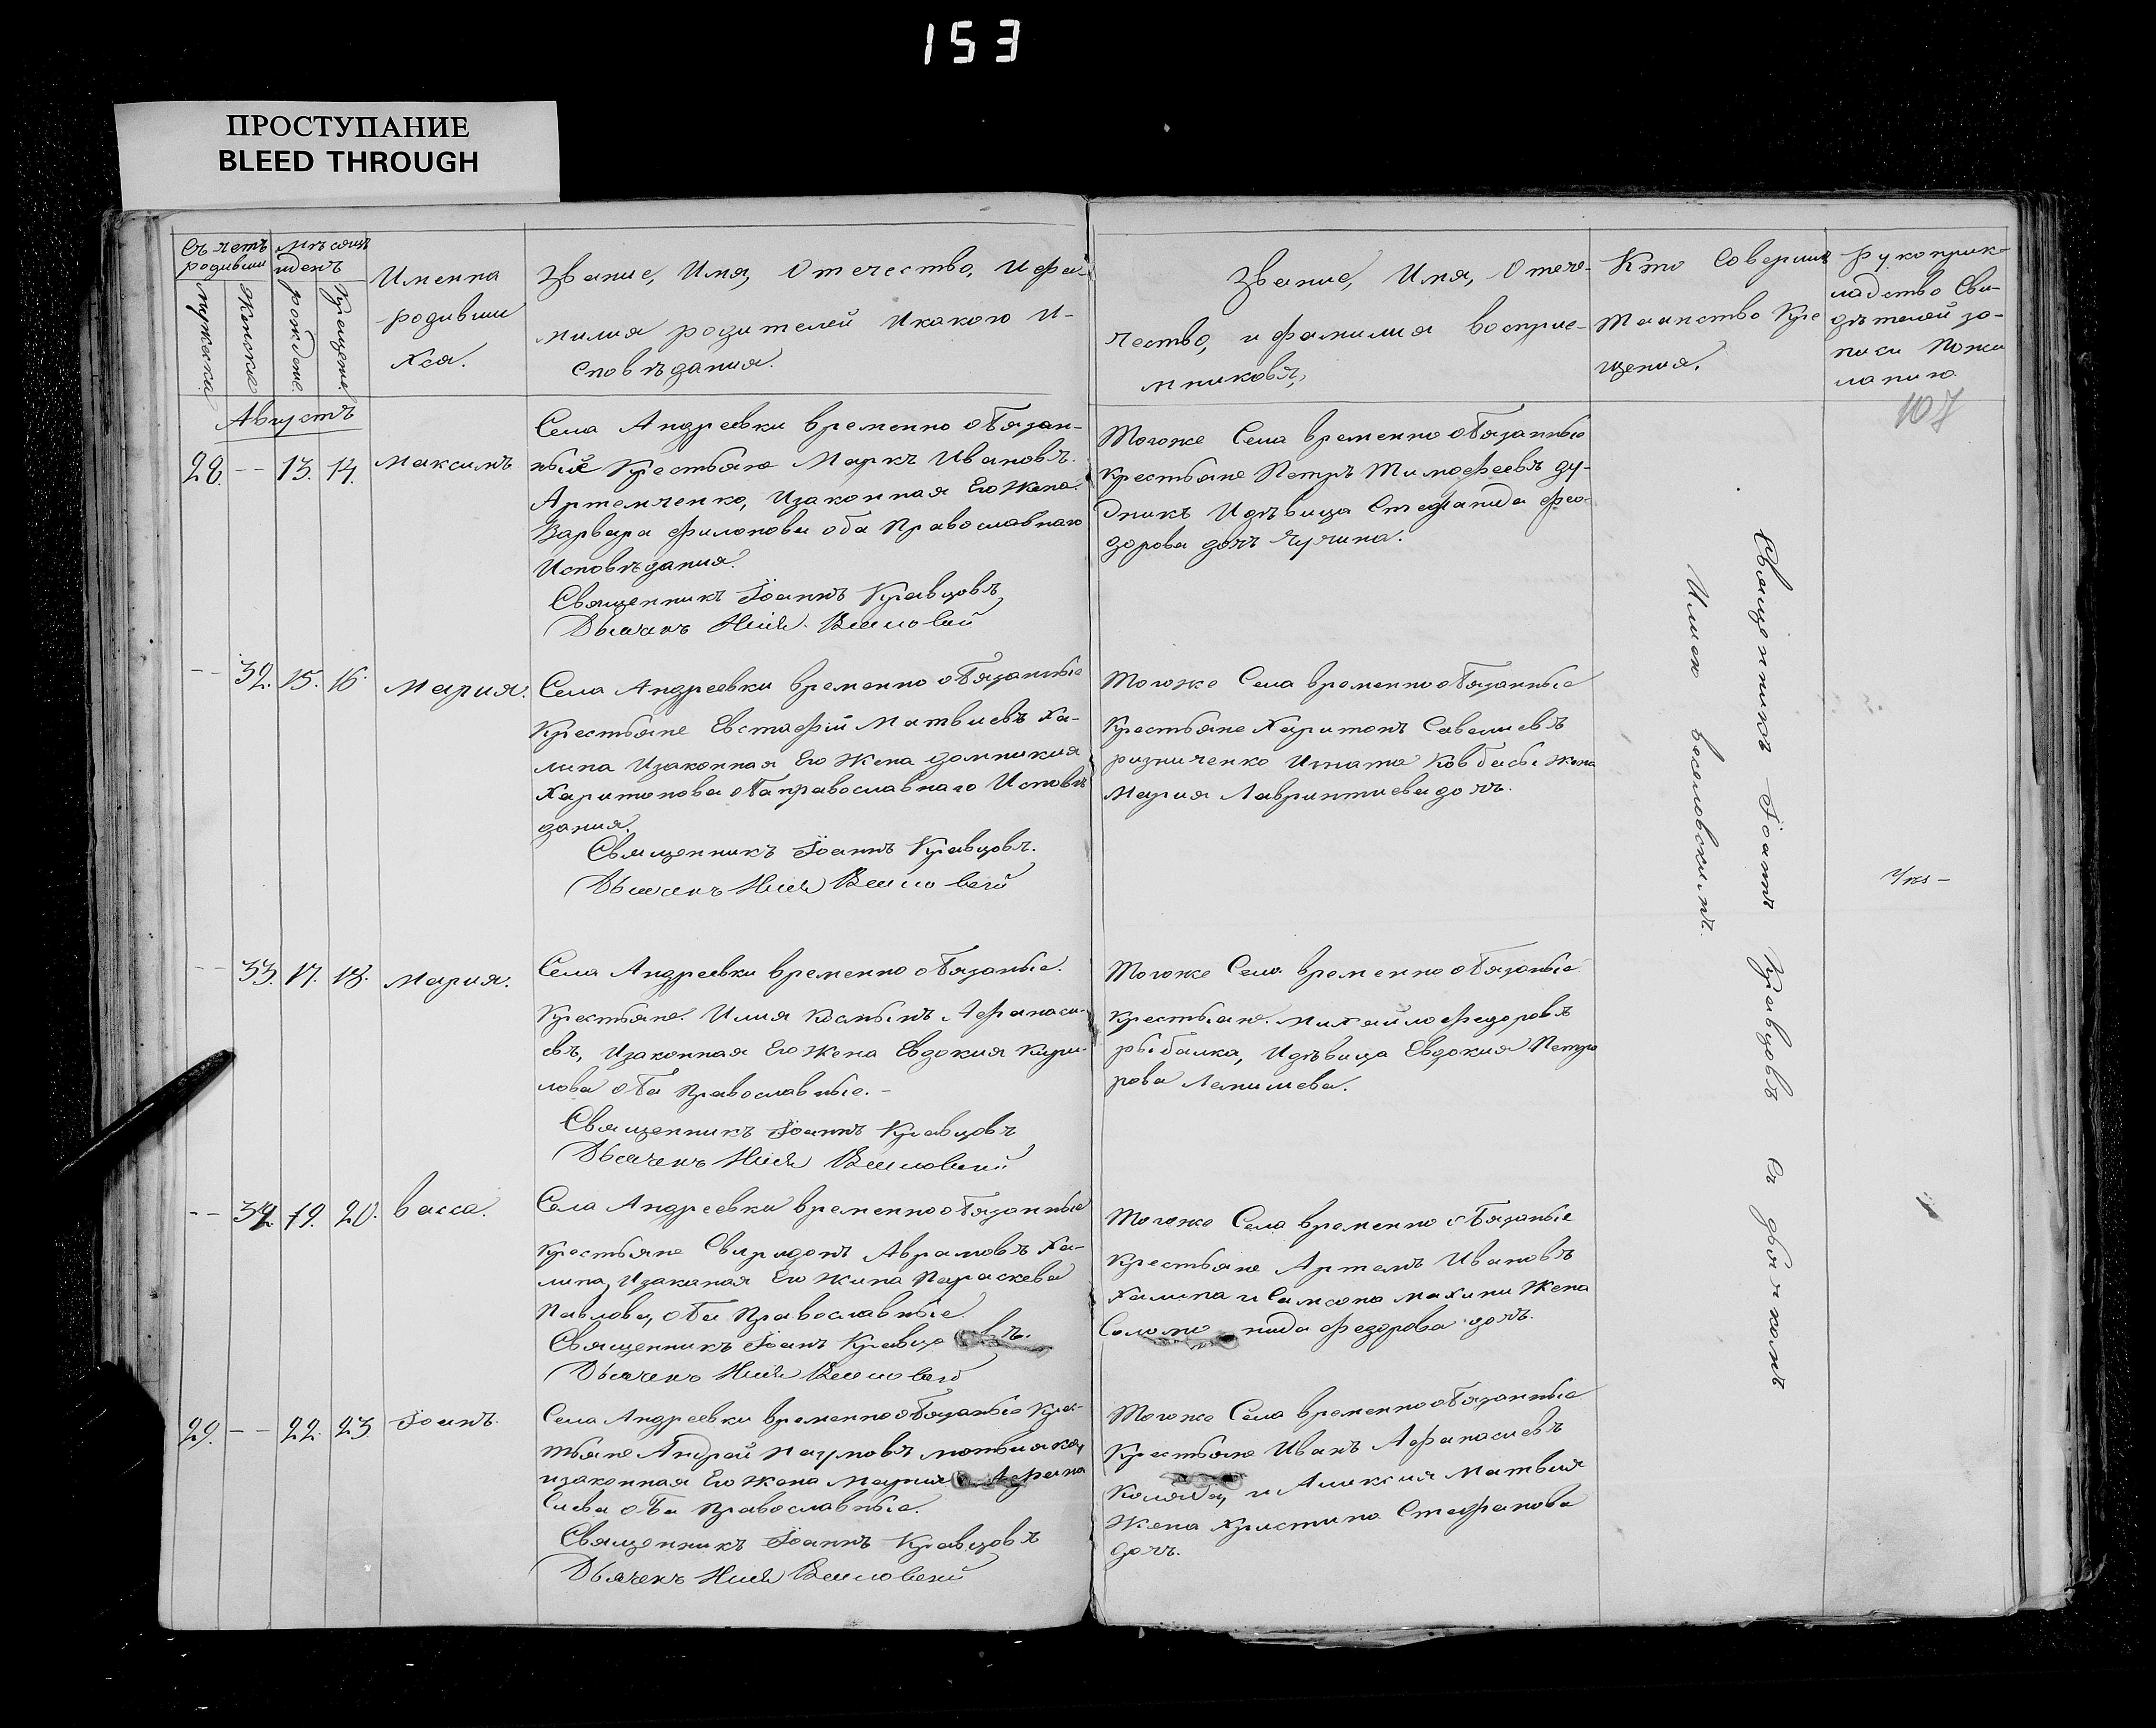 153
ПРОСТУПАНИЕ
BLEED THROUGH
Съчетъ родивши
Мѣсяцъ иденъ
Мужеска
Женска
рождение
Крещение
Именна
родивши
хся.
Звание, Имя, Отечество, Ифа-
милия родителей Икакого И-
сповѣдания.
Звание, Имя, Отече-
чество, и фамилия восприе-
мниковъ,
Кто Совершилъ
Таинство Кре
щения.
Рукоприк-
ладство Сви-
дѣтелей за-
писи Поже
ланию
107
Августъ
28. -- 13. 14. Максимъ
Села Андреевки временно обязан-
ные Крестьяне Маркъ Ивановъ
Артемченко, Изаконная Его Жена
Варвара Филонова оба Православнаго
Исповѣдания.
Священникъ Іоаннъ Кравцовъ
Дьячекъ Илія Веселовскій
Тогоже Села временно обязанные
крестьяне Петръ Тимофеевъ ду-
дникъ Идѣвица Стефанида Фео-
дорова дочь Чучина.
-- 32. 15. 16. Мария.
Села Андреевки временно обязанные
Крестьяне Евстафій Матвиевъ Ха-
липа Изаконная Его Жена домникия
Харитонова оба православнаго Исповѣ
дания.
Священникъ Іоаннъ Кравцовъ.
Дьячекъ Илія Веселовскій
Тогоже Села временно обязанные
Крестьяне Харитонъ Савелиевъ
ризниченко Игната Ковбасы жена
Мария Лавринтиева дочь.
-- 33. 17. 18. Мария.
Села Андреевки временно обязаные.
Крестьяне. Илия Косминъ Афанаси-
евъ, Изаконная Его Жена Евдокия Кири-
лова оба Православные.-
Священникъ Іоаннъ Кравцовъ
Дьячекъ Илія Веселовскій
Тогоже Села временно обязаные
крестьяне. Михайло Федоровъ
рыбалка, Идѣвица Евдокия Петро
рова
-- 34. 19. 20. Васса.
Села Андреевки временно обязанные
крестьяне Свиридонъ Аврамовъ Ха-
липа, Изаконая Его Жина Параскева
Павлова, оба Православные
Священникъ Іоанъ Кравцовъ.
Дьячекъ Илія Веселовскій
Тогоже Села временно обязаные
крестьяне Артемъ Ивановъ
Халипа и Самсона махини Жена
Соломонида Федорова дочь.
29. -- 22. 23 Іоанъ.
Села Андреевки временно обязаные Крес-
тьяне Андрей Наумовъ
изаконная Его Жена Мария Афана
Сиева оба Православные.
Священникъ Іоаннъ Кравцовъ
Дьячекъ Илія Веселовскій
Тогоже Села временно обязанные
Крестьяне Иванъ Афанасиевъ
Коляда, и Аликсия Матвия
Жена Христина Стефанова
дочь.
Священникъ Іоаннъ Кравцовъ съ дьячкомъ
Илиею Веселовскимъ.